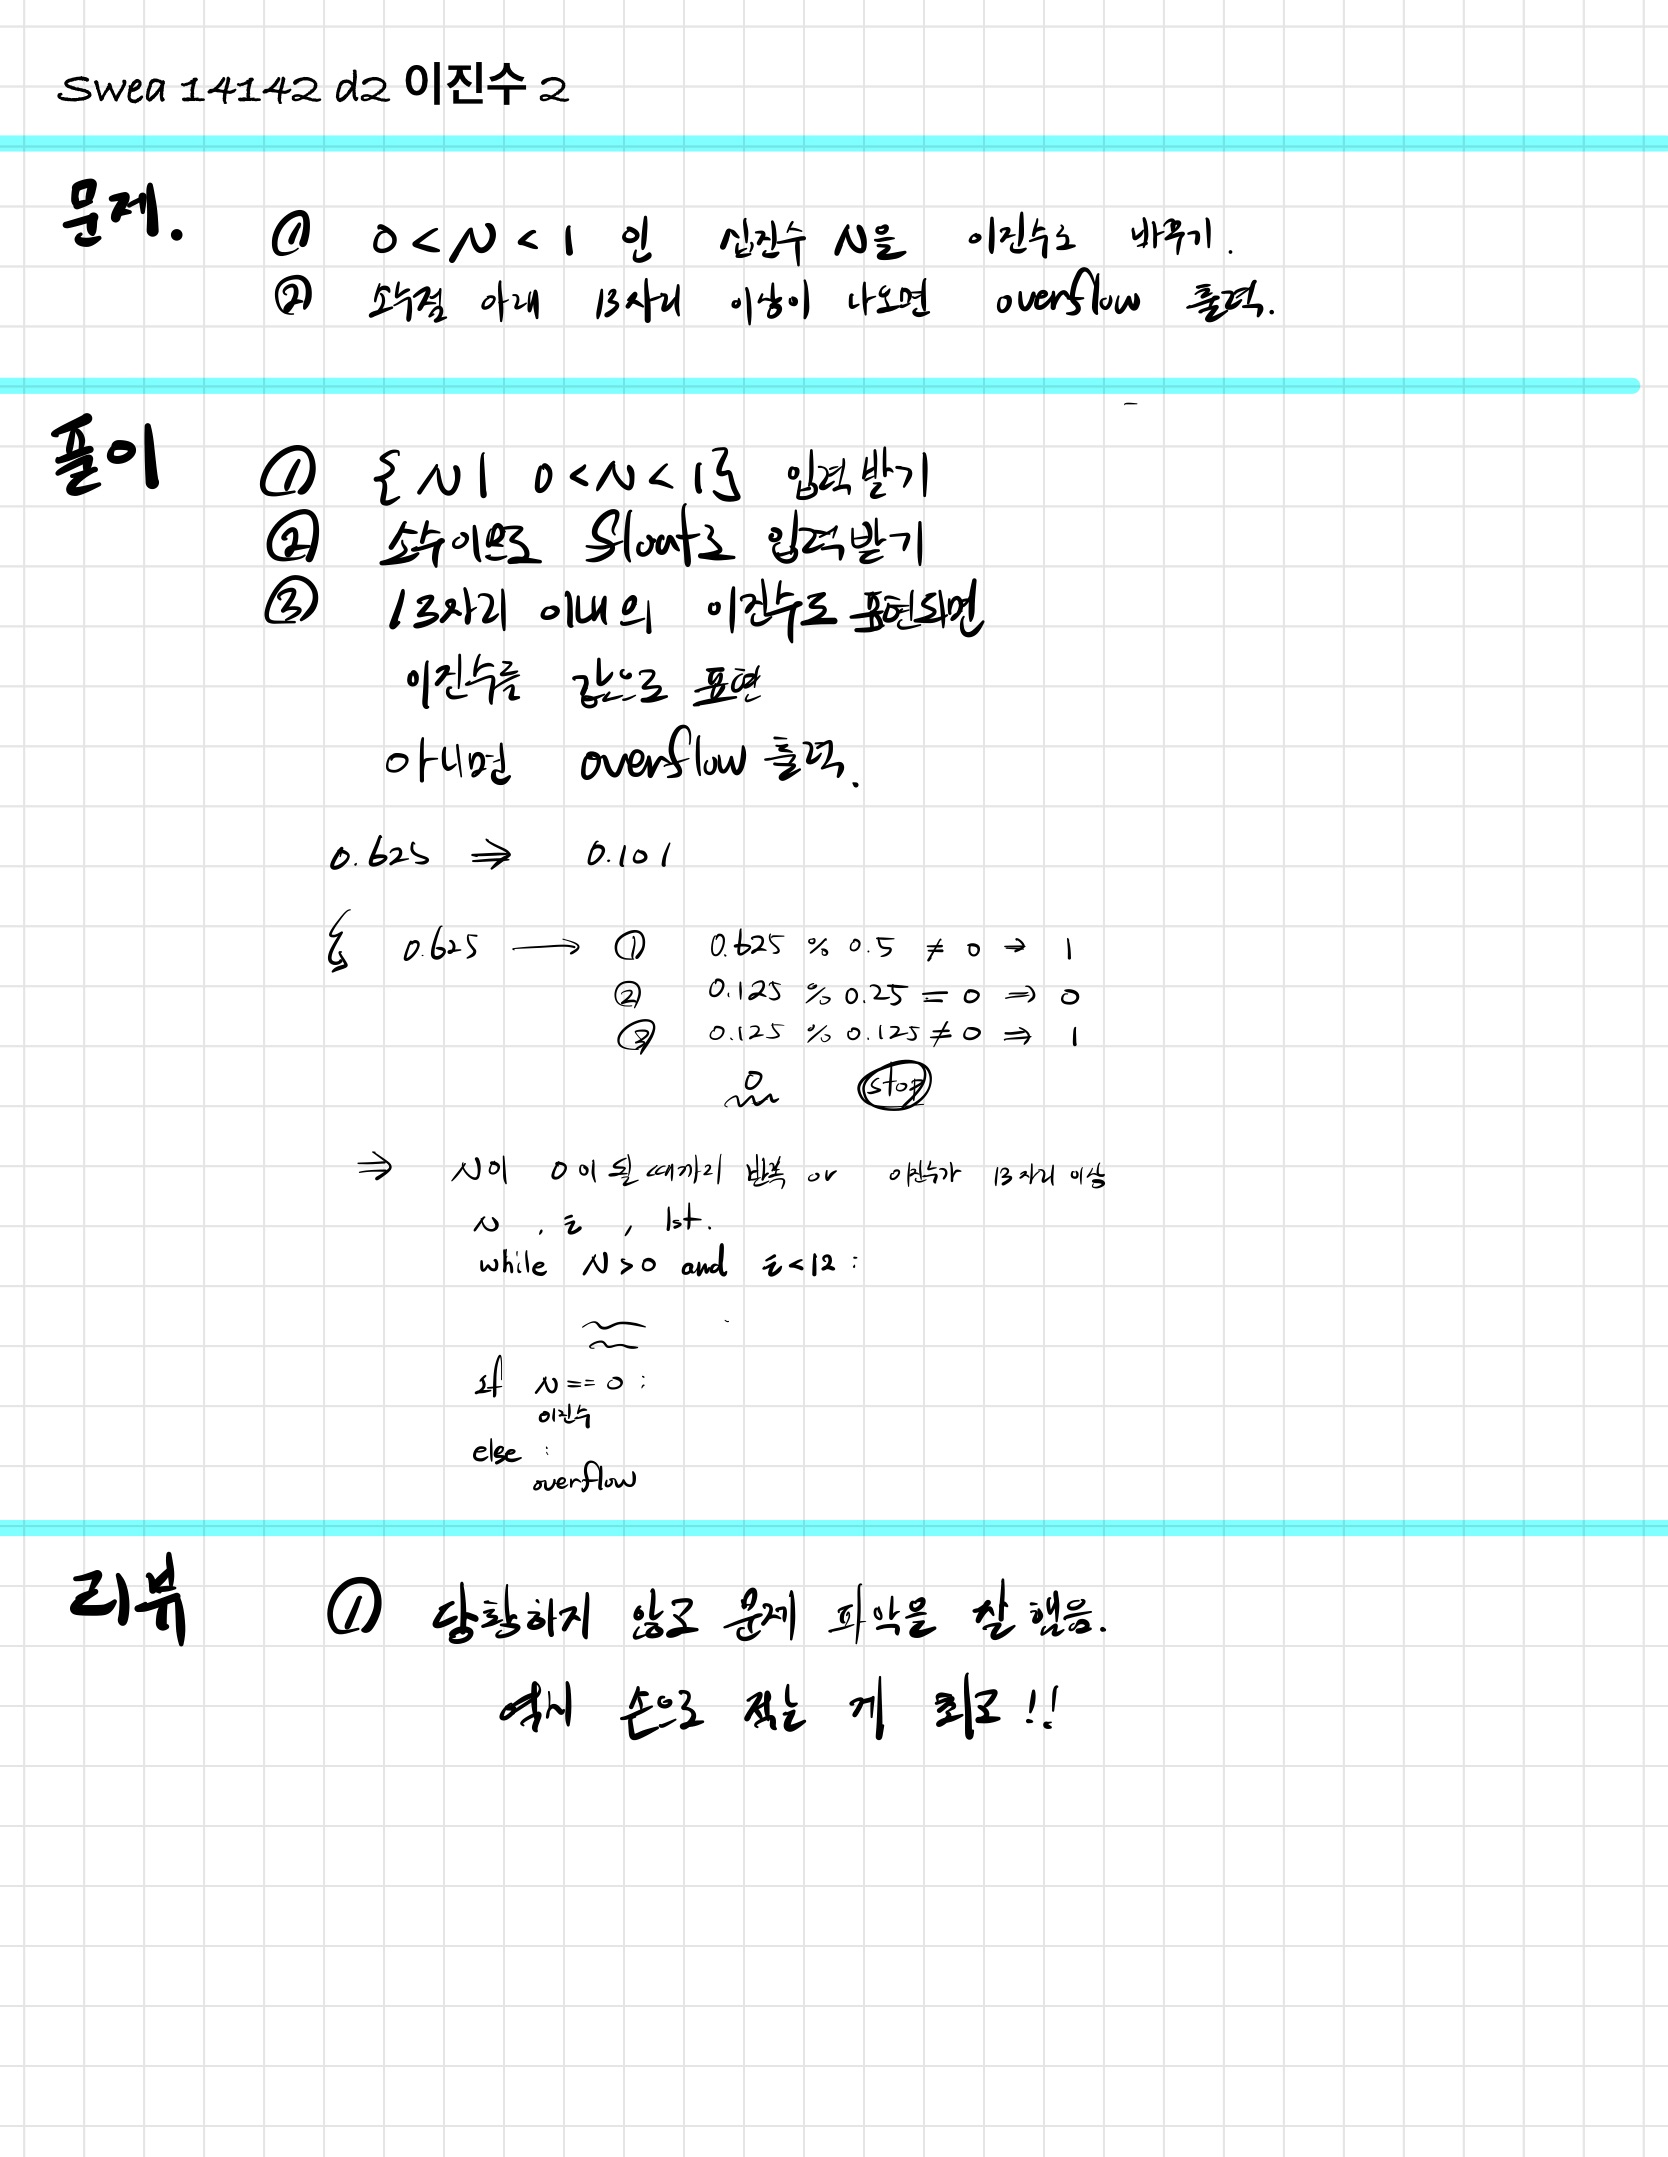 Swea 14142 d2 이진수 2
문제.
① 0 < N < 1 인 십진수 N을 이진수로 바꾸기.
② 소수점 아래 13자리 이상이 나오면 overflow 출력.
풀이
① { N | 0 < N < 1} 입력 받기
② 소수이므로 float로 입력 받기
③ 13자리 이내의 이진수로 표현되면
이진수를 값으로 표현
아니면 overflow 출력.
0.625 ⇒ 0.101
{ 0.625 → ① 0.625 % 0.5 ≠ 0 ⇒ 1
② 0.125 % 0.25 = 0 ⇒ 0
③ 0.125 % 0.125 ≠ 0 ⇒ 1
0 stop
⇒ N이 0이 될 때까지 반복 or 이진수가 13자리 이상
N , i , lst.
while N > 0 and i < 12 :
if N == 0 :
이진수
else :
overflow
리뷰
① 당황하지 않고 문제 파악을 잘 했음.
역시 손으로 적는 게 최고!!